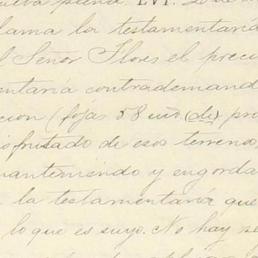 LVI.
lama la testamentaría
l Señor Flores el precio
entaría contrademand
cion (fojas 58 (de) pro
isfrutado de esos terreno
manteniendo y engorda
la testamentaría que
lo que es suyo. No hay se